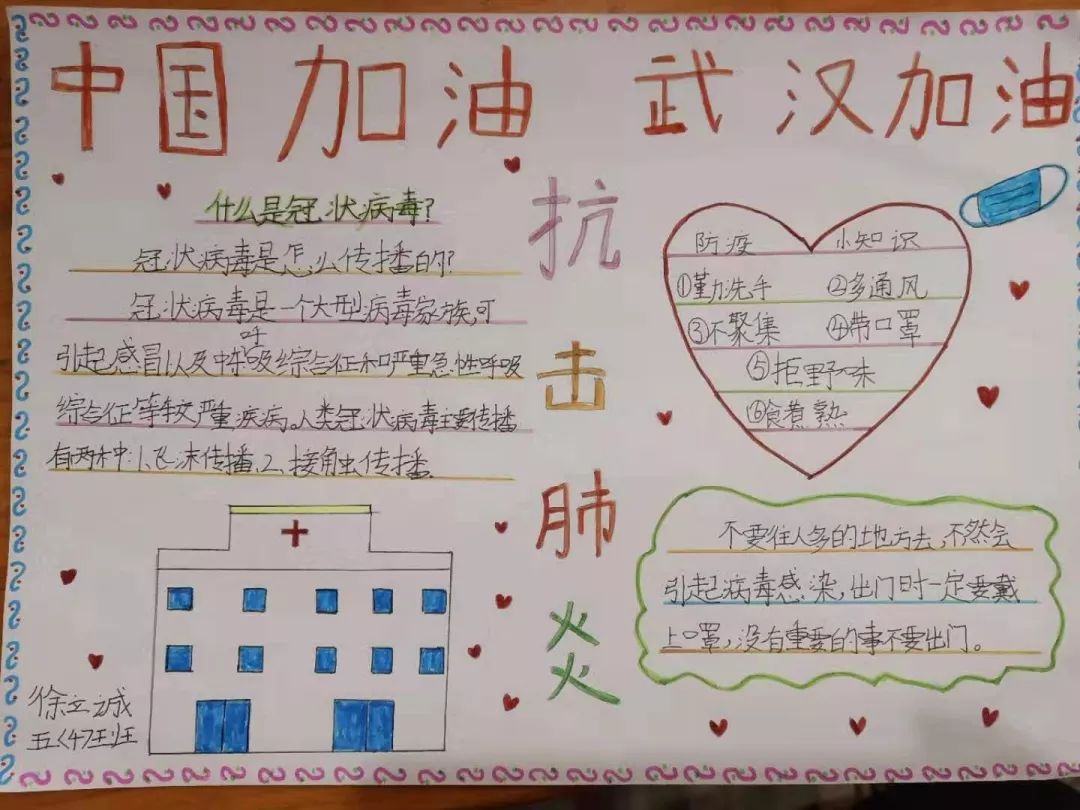 中国加油 武汉加油
什么是冠状病毒?
冠状病毒是怎么传播的?
冠状病毒是一个大型病毒家族,可
引起感冒以及中东呼吸综合征和严重急性呼吸
综合征等较严重疾病。人类冠状病毒主要传播
有两种:1、飞沫传播、2、接触传播.
抗击肺炎
防疫 小知识
①勤洗手 ②多通风
③不聚集 ④带口罩
⑤拒野味
⑥食煮熟
不要往人多的地方去,不然会
引起病毒感染,出门时一定要戴
上口罩,没有重要的事不要出门。
徐立诚
五〈4〉班